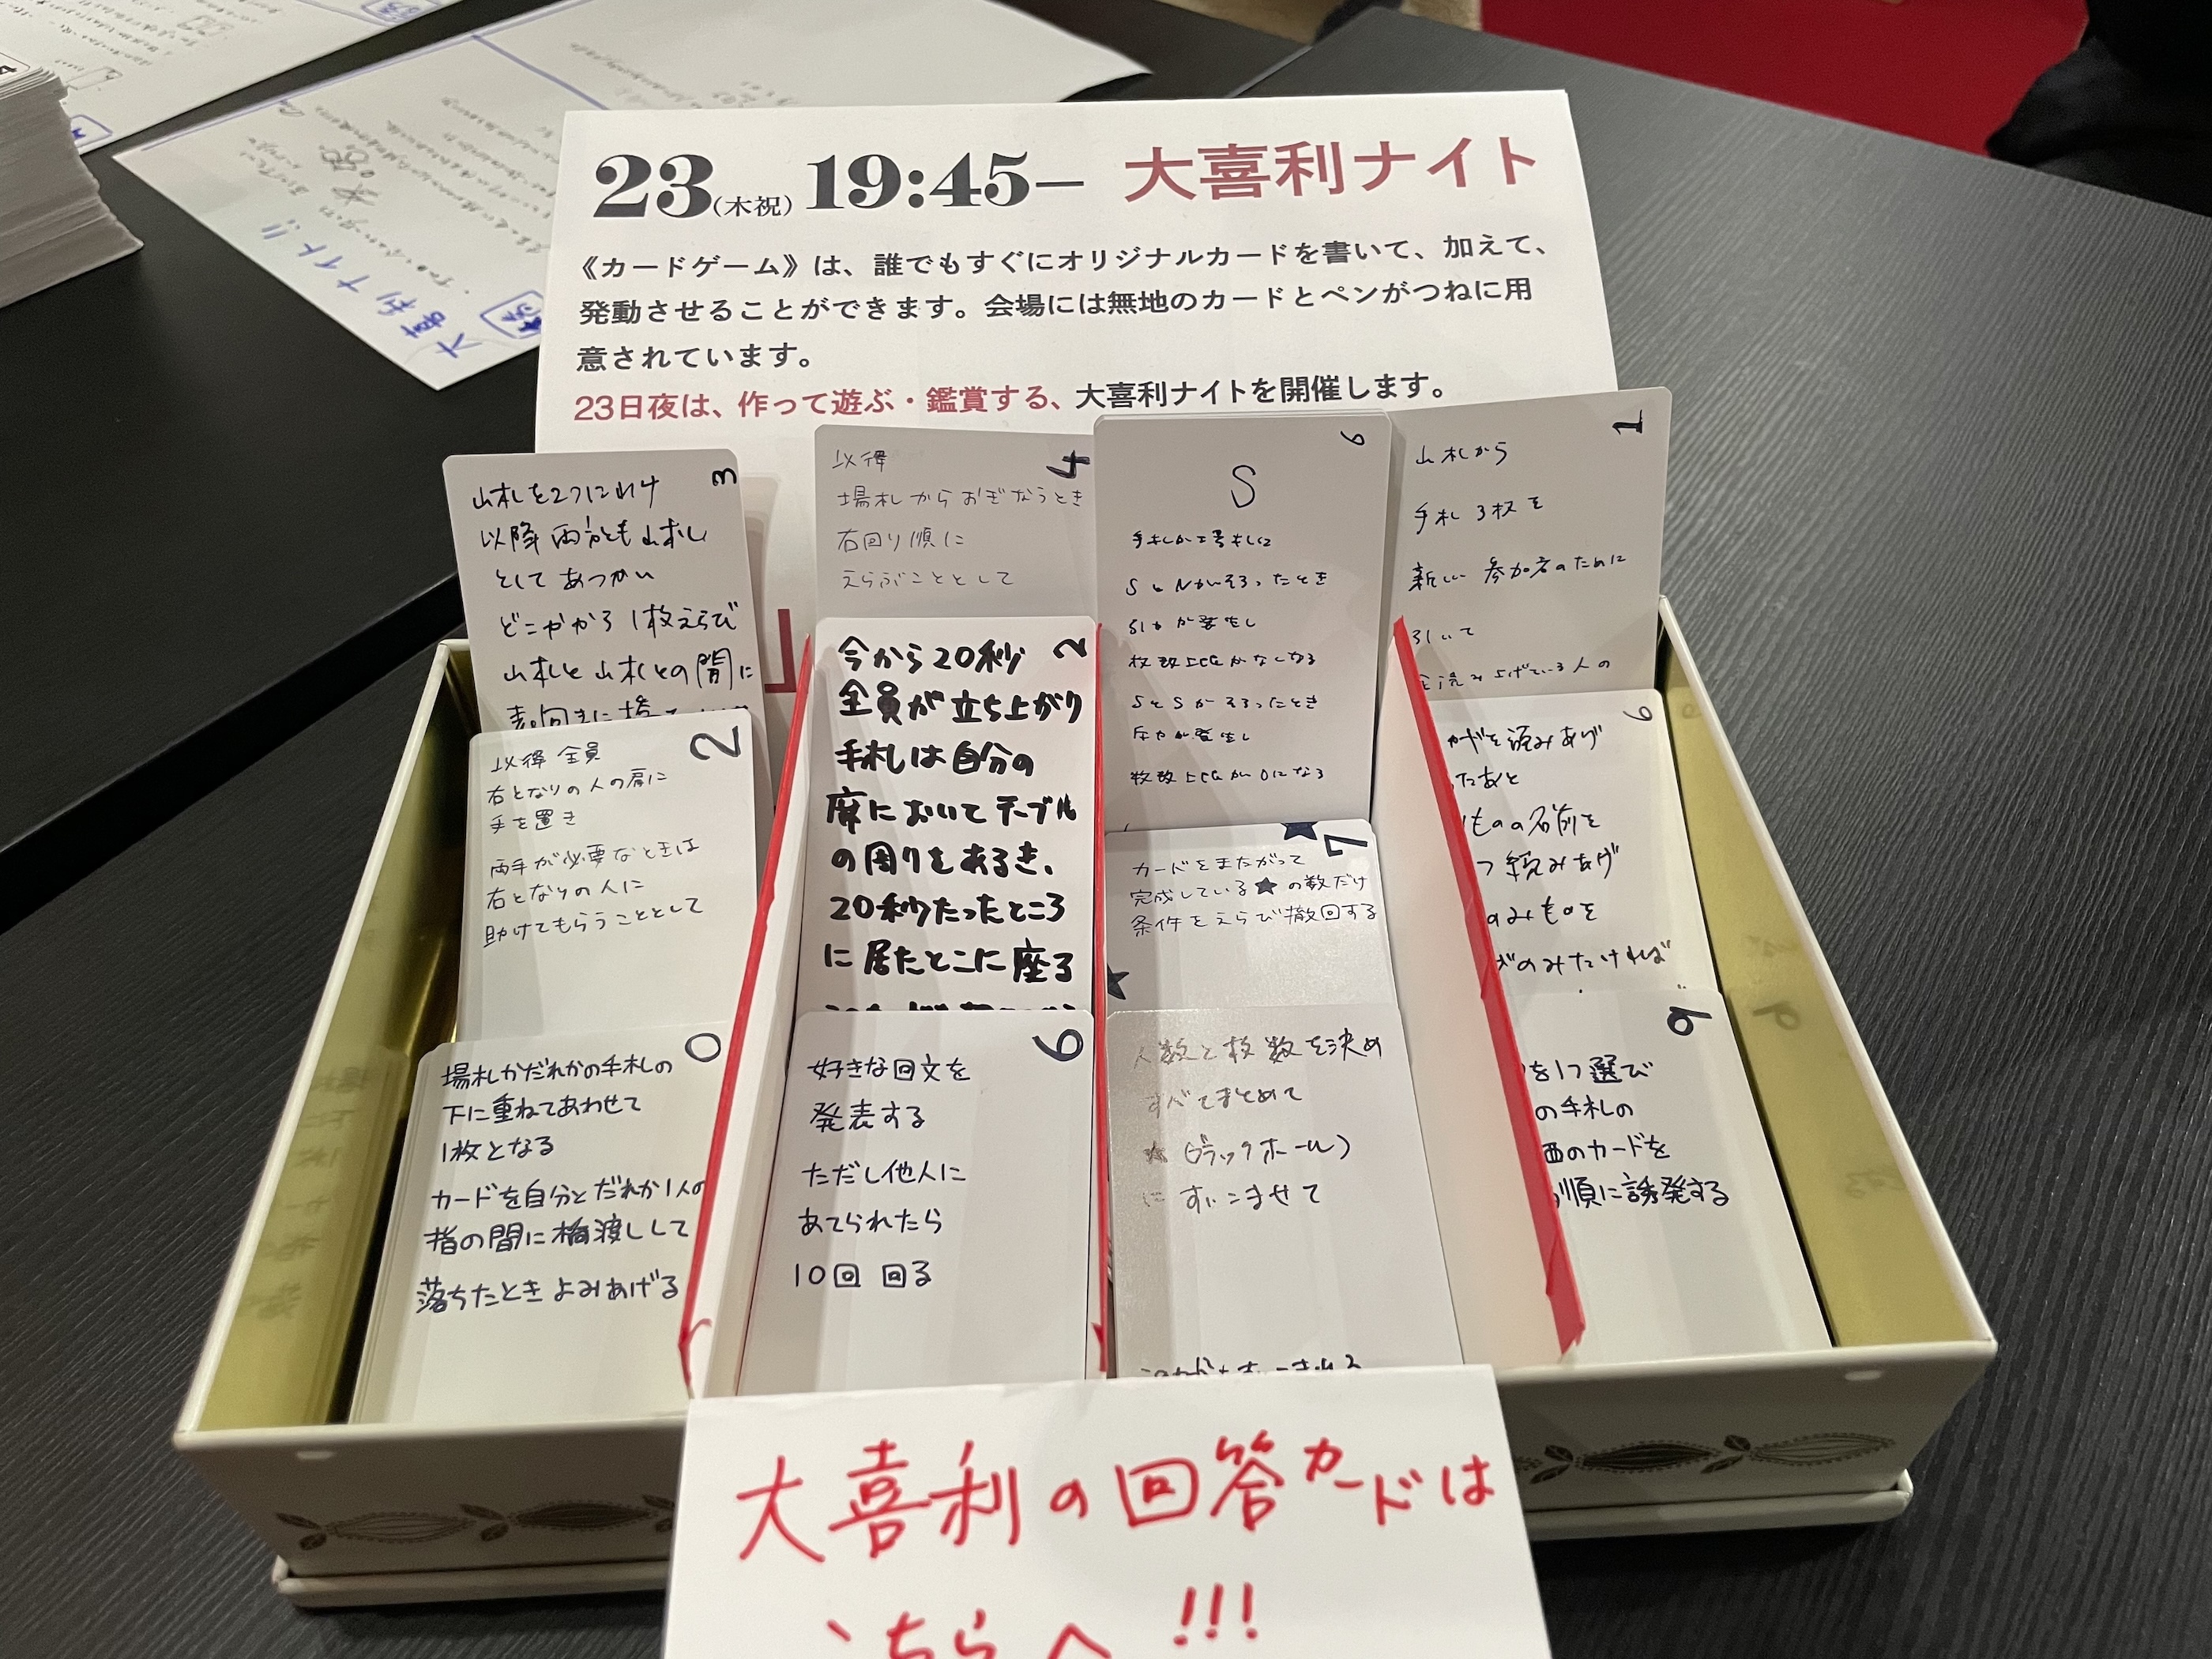 23(木祝) 19:45− 大喜利ナイト
《カードゲーム》は、誰でもすぐにオリジナルカードを書いて、加えて、
発動させることができます。会場には無地のカードとペンがつねに用
意されています。
23日夜は、作って遊ぶ・鑑賞する、大喜利ナイトを開催します。
大喜利ナイト!!
3
山札を2つにわけ
以降 両方とも山札
として あつかい
どこかから 1枚えらび
山札と山札との間に
表向きに
2
以後 全員
右となりの人の肩に
手を置き
両手が必要なときは
右となりの人に
助けてもらうこととして
0
場札かだれかの手札の
下に重ねてあわせて
1枚となる
カードを自分とだれか1人の
指の間に橋渡しして
落ちたとき よみあげる
4
以後
場札から おぎなうとき
右回り順に
えらぶこととして
2
今から20秒
全員が立ち上がり
手札は自分の
席においてテーブル
の周りをあるき、
20秒たったところ
に居たとこに座る
6
好きな回文を
発表する
ただし他人に
あてられたら
10回 回る
6
S
手札か場札に
SとNがそろったとき
引力が発生し
枚数上限がなくなる
SとSがそろったとき
斥力が発生し
枚数上限が0になる
7
カードをまたがって
完成している★の数だけ
条件をえらび撤回する
人数と枚数を決め
すべてまとめて
★(ブラックホール)
に すいこませて
1
山札から
手札 3枚を
新しい 参加者のために
引いて
読み上げている人の
6
カードを読みあげ
たあと
ものの名前を
つ読みあげ
のみものを
がのみたければ
9
を1つ選び
の手札の
のカードを
順に誘発する
大喜利の回答カードは
こちらへ!!!